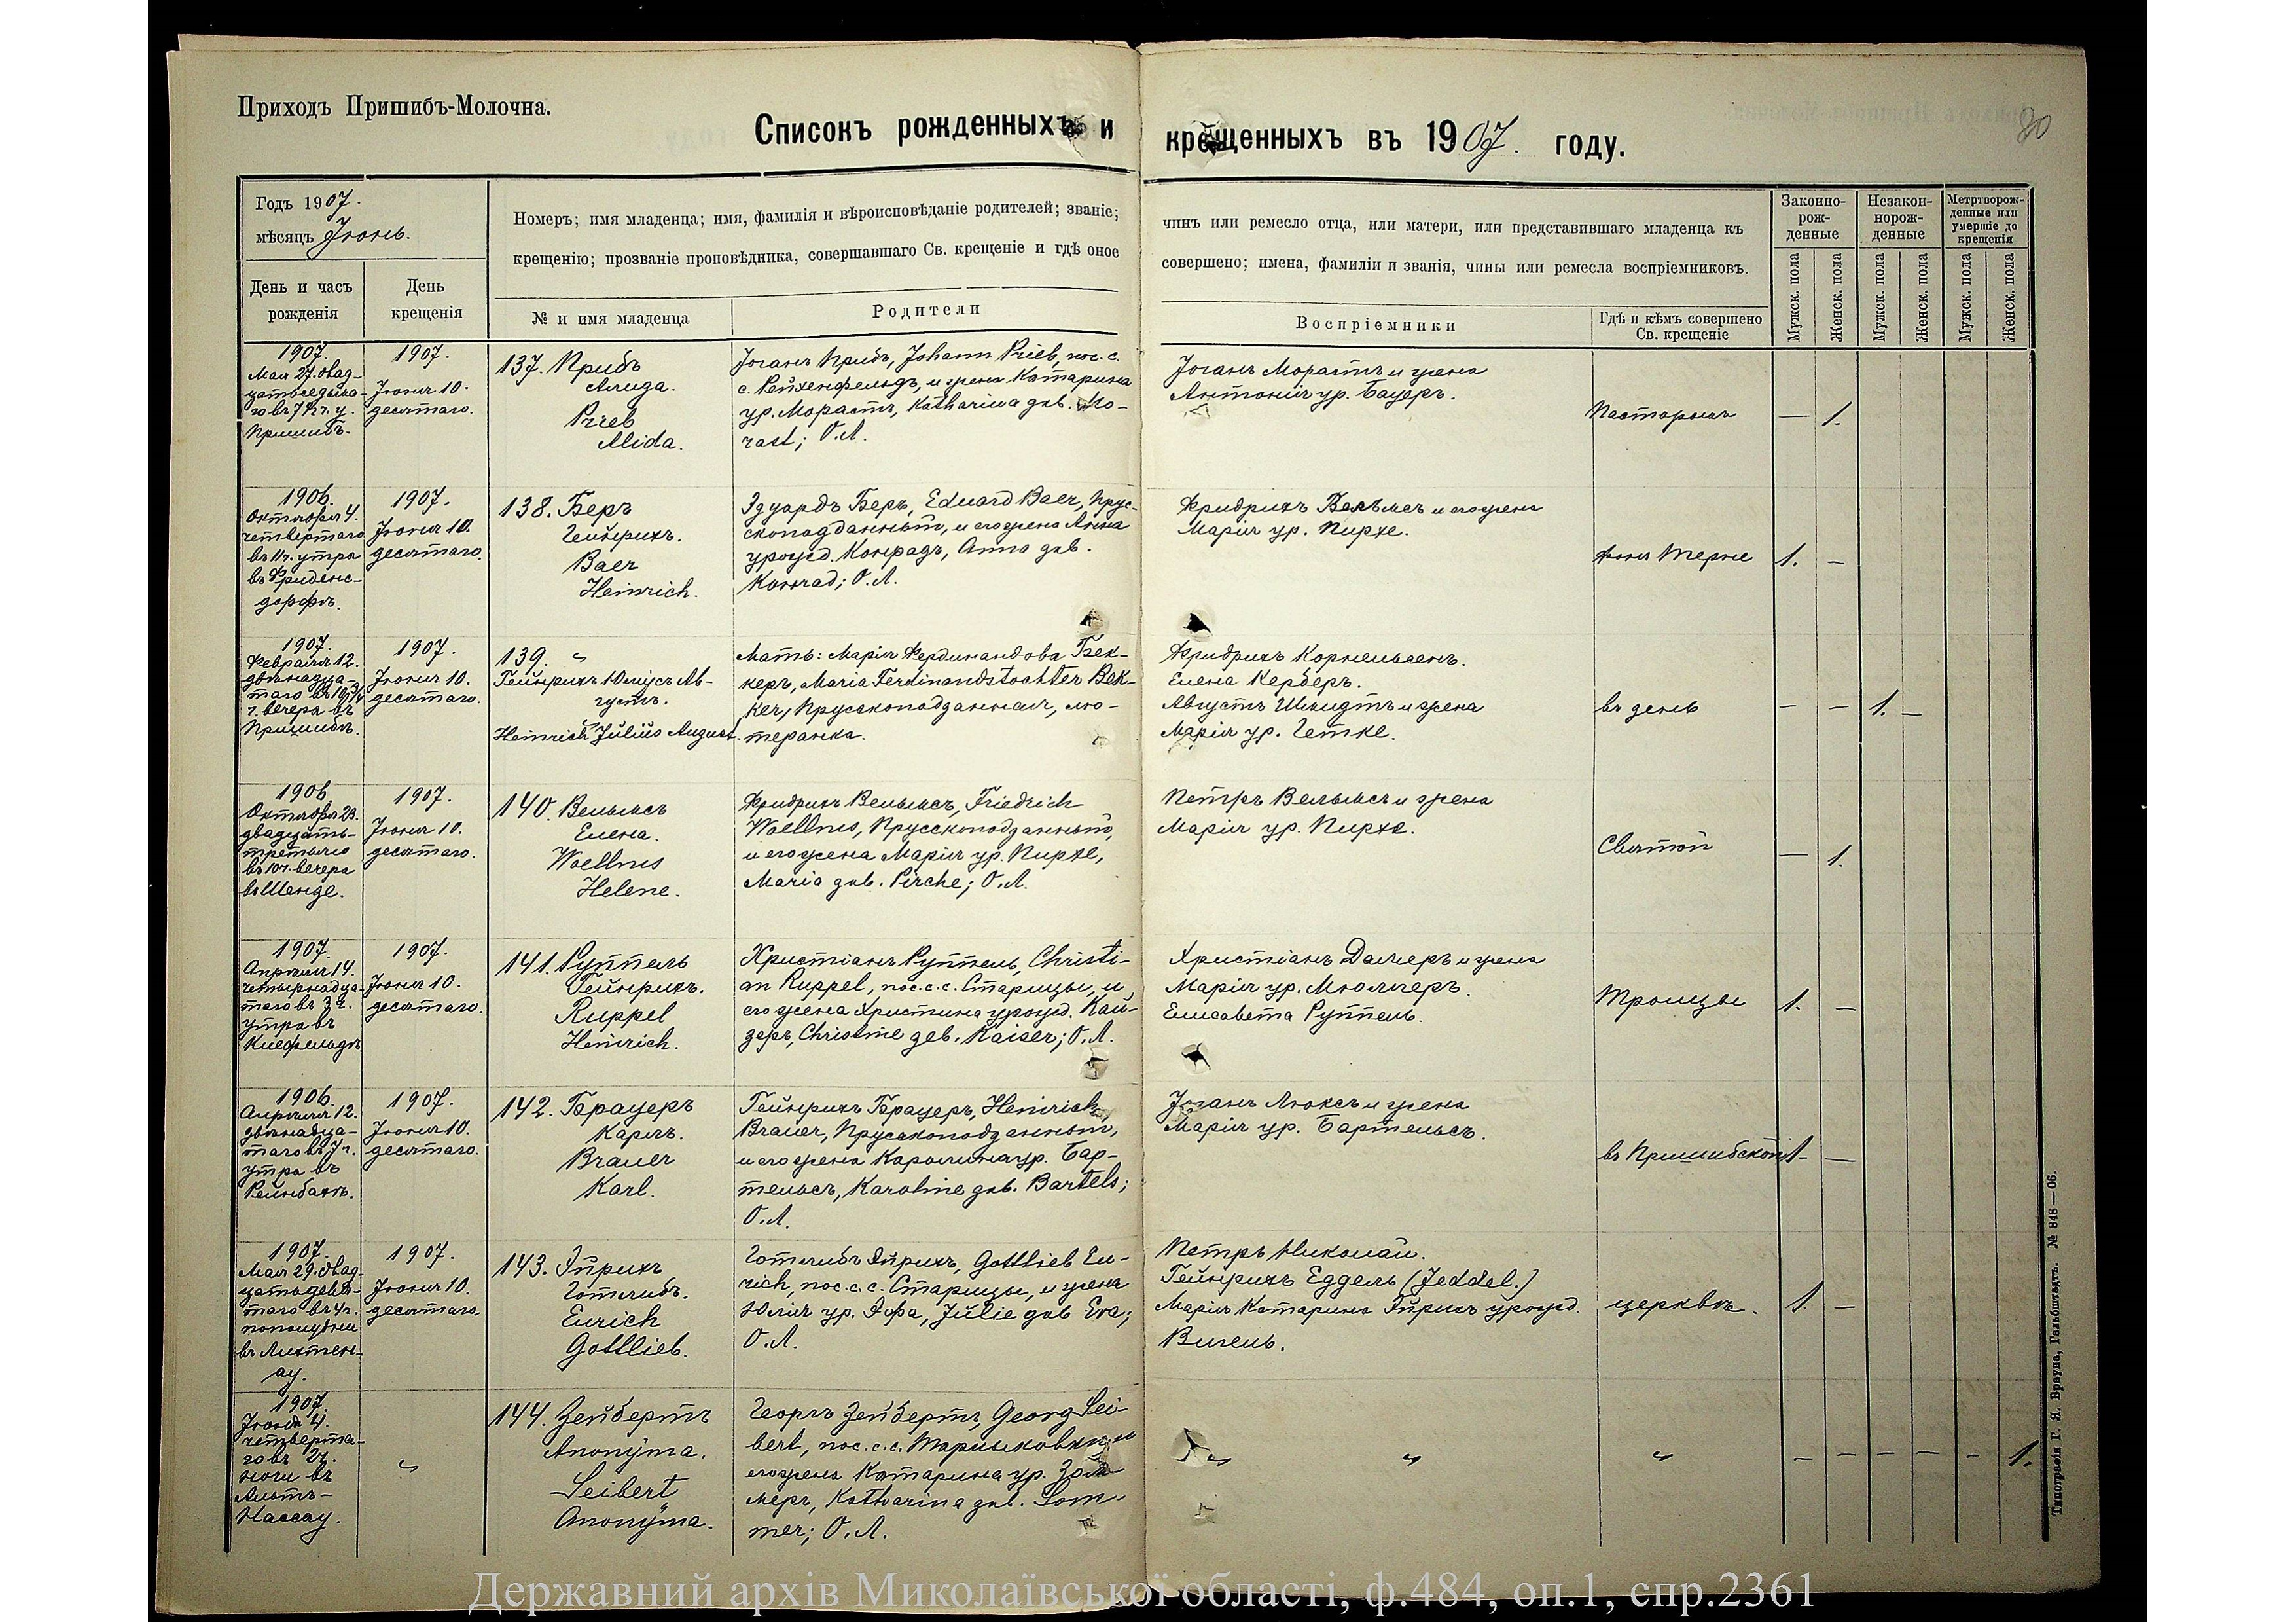 Приходъ Пришибъ-Молочна.
Списокъ рожденныхъ и крещенныхъ въ 1907. году.
80
Годъ 1907.
мѣсяцъ Іюнь.
День и часъ рожденія
День крещенія
Номеръ; имя младенца; имя, фамилія и вѣроисповѣданіе родителей; званіе;
крещенію; прозваніе проповѣдника, совершавшаго Св. крещеніе и гдѣ оное
№ и имя младенца
Родители
чинъ или ремесло отца, или матери, или представившаго младенца къ
совершено; имена, фамиліи и званія, чины или ремесла воспріемниковъ.
Воспріемники
Гдѣ и кѣмъ совершено
Св. крещеніе
Законно-
рож-
денные
Незакон-
норож-
денные
Метртворож-
денные или
умершіе до
крещенія
Мужск. пола
Женск. пола
Мужск. пола
Женск. пола
Мужск. пола
Женск. пола
1907.
Мая 27. двад-
цатьседьма-
го въ 7½ ч. у.
Пришибъ.
1907.
Іюня 10.
десятаго.
137. Прибъ
Алида.
Prieb
Alida.
Іоганъ Прибъ, Johann Prieb, пос. с.
с. Рейхенфельдъ, и жена Катарина
ур. Морастъ, Katharina geb. Mo-
rast; О.Л.
Іоганъ Морастъ и жена
Антонія ур. Бауеръ.
Пасторомъ
— 1.
1906.
Октября 4.
четвертаго
въ 11 ч. утра
въ Фриденс-
дорфѣ.
1907.
Іюня 10.
десятаго.
138. Беръ
Гейнрихъ.
Baer
Heinrich.
Эдуардъ Беръ, Eduard Baer, Прус-
скоподданный, и его жена Анна
урожд. Конрадъ, Anna geb.
Konrad; О.Л.
Фридрихъ Вельмсъ и его жена
Марія ур. Пирхе.
фонъ Терне
1. —
1907.
Февраля 12.
двѣнадца-
таго въ 10¾
ч. вечера въ
Пришибѣ.
1907.
Іюня 10.
десятаго.
139. "
Гейнрихъ Юліусъ Ав-
густъ.
Heinrich Julius August.
Мать: Марія Фердинандова Бек-
керъ, Maria Ferdinandstochter Bek-
ker, Прусскоподданная, лю-
теранка.
Фридрихъ Корнельсенъ.
Елена Керберъ.
Августъ Шмидтъ и жена
Марія ур. Гетке.
въ день
— — 1. —
1906
Октября 23.
двадцать-
третьяго
въ 10 ч. вечера
въ Шенде.
1907.
Іюня 10.
десятаго.
140. Вельмсъ
Елена.
Woellms
Helene.
Фридрихъ Вельмсъ, Friedrich
Woellms, Прусскоподданный,
и его жена Марія ур. Пирхе,
Maria geb. Pirche; О.Л.
Петръ Вельмсъ и жена
Марія ур. Пирхе.
Святой
— 1.
1907.
Апрѣля 14.
четырнадца-
таго въ 3 ч.
утра въ
Кисфельдѣ
1907.
Іюня 10.
десятаго.
141. Руппель
Гейнрихъ.
Ruppel
Heinrich.
Христіанъ Руппель, Christi-
an Ruppel, пос. с. с. Старицы, и
его жена Христина урожд. Кай-
зеръ, Christine geb. Kaiser; О.Л.
Христіанъ Дамеръ и жена
Марія ур. Мюллеръ.
Елисавета Руппель.
Троицы
1. —
1906.
Апрѣля 12.
двѣнадца-
таго въ 7 ч.
утра въ
Рейнбахѣ.
1907.
Іюня 10.
десятаго.
142. Брауеръ
Карлъ.
Brauer
Karl.
Гейнрихъ Брауеръ, Heinrich
Brauer, Прусскоподданный,
и его жена Каролина ур. Бар-
тельсъ, Karoline geb. Bartels;
О.Л.
Іоганъ Люксъ и жена
Марія ур. Бартельсъ.
въ Пришибской
1. —
1907.
Мая 29. двад-
цатьдевя-
таго въ 4 ч.
пополудни
въ Лихтен-
ау.
1907.
Іюня 10.
десятаго
143. Эйрихъ
Готлибъ.
Eurich
Gottlieb.
Готлибъ Эйрихъ, Gottlieb Eu-
rich, пос. с. с. Старицы, и жена
Юлія ур. Эфа, Julie geb Eva;
О.Л.
Петръ Николай.
Гейнрихъ Еддель (Jeddel.)
Марія Катарина Эйрихъ урожд.
Вигель.
церквѣ.
1. —
1907.
Іюня 4.
четверта-
го въ 2 ч.
ночи въ
Альтъ-
Нассау.
"
144. Зейбертъ
Anonÿma.
Seibert
Anonÿma.
Георгъ Зейбертъ, Georg Sei-
bert, пос. с. с.
его жена Катарина ур. Зом-
меръ, Katharina geb. Som-
mer; О.Л.
" " "
— — — — — 1.
Типографія Г. Я. Брауна, Гальбштадтъ. № 848—06.
Державний архів Миколаївської області, ф.484, оп.1, спр.2361